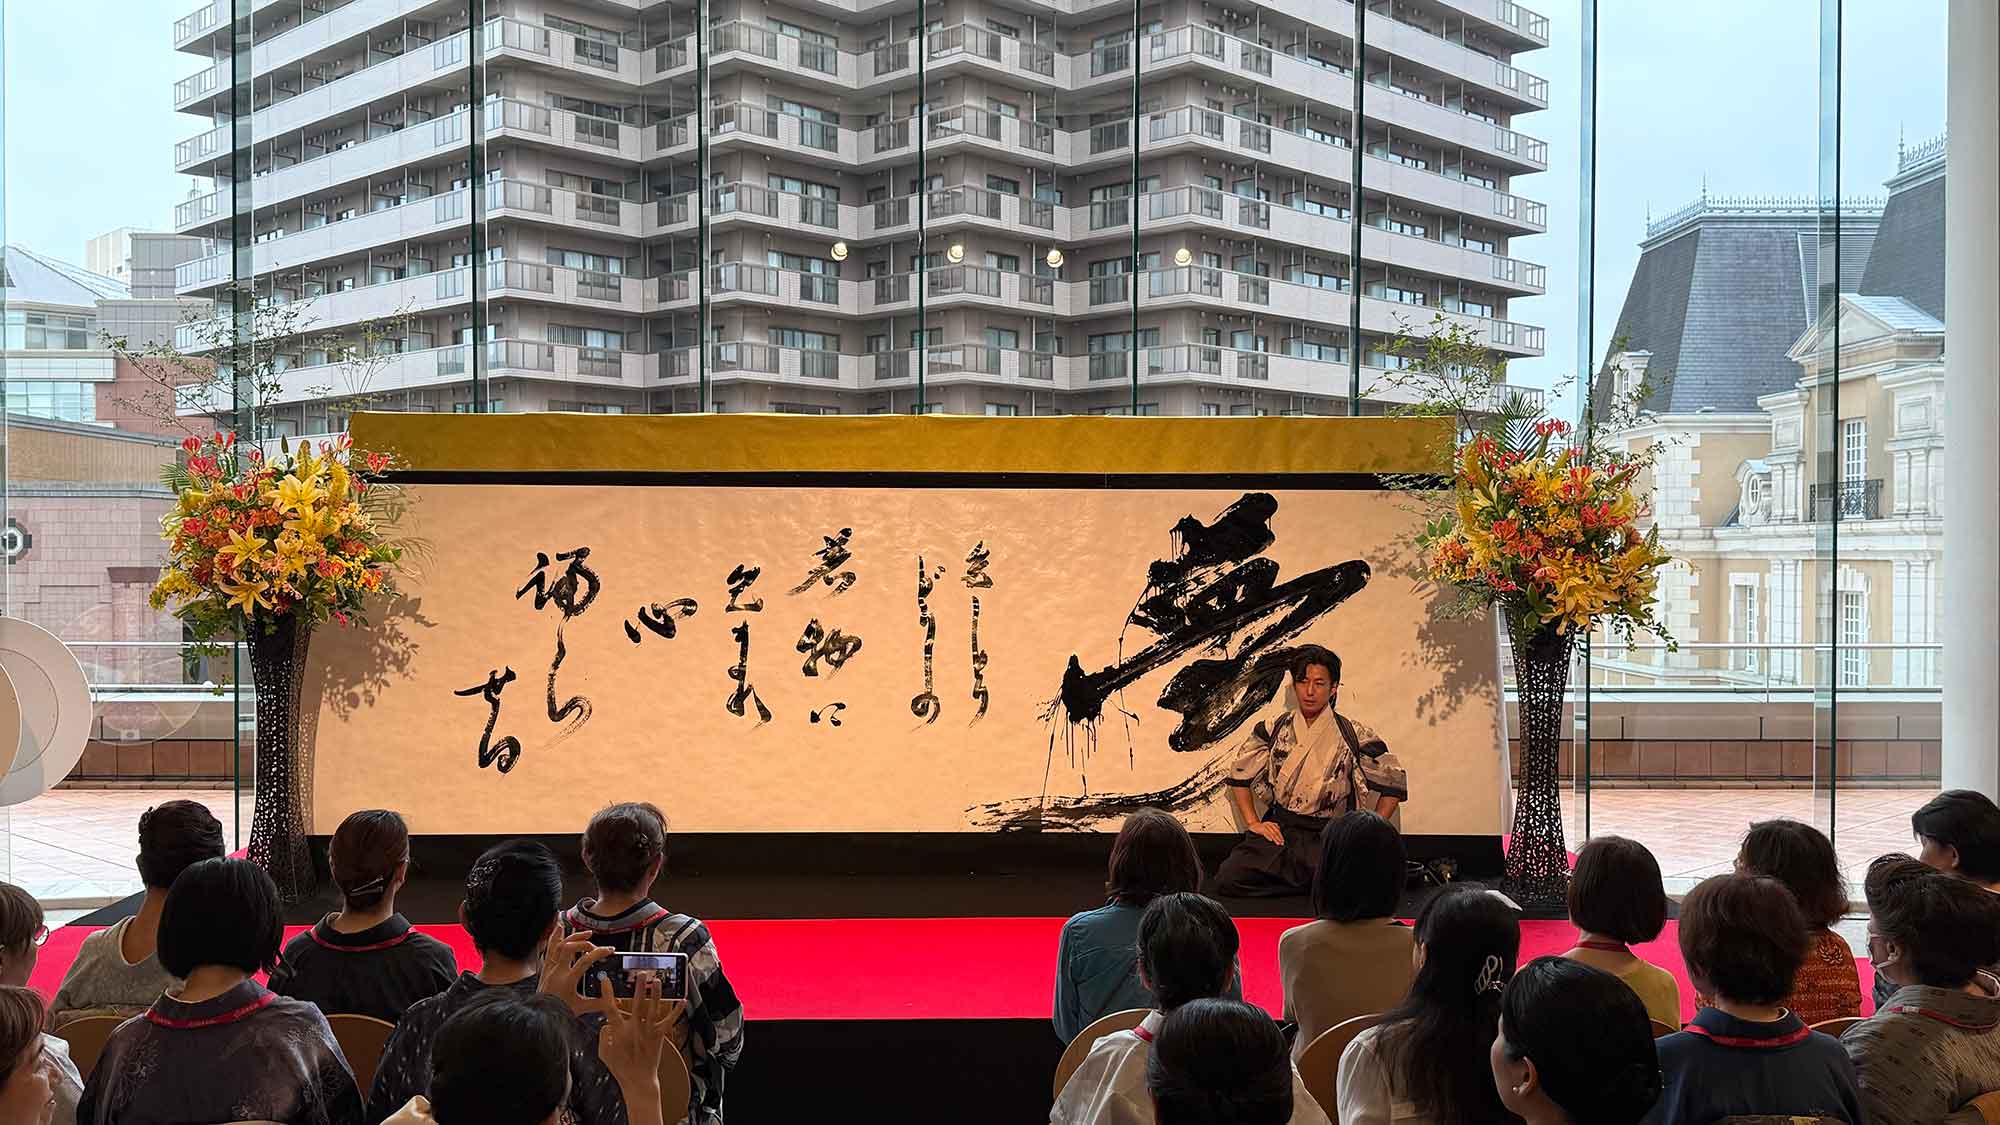 夢
色とり
どりの
着物に
包まれ
心
踊ら
せる